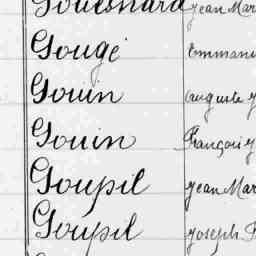 Jean Mar
Gougé Emmanu
Gouin Auguste J
Gouin François J
Goupil Jean Mar
Goupil Joseph F